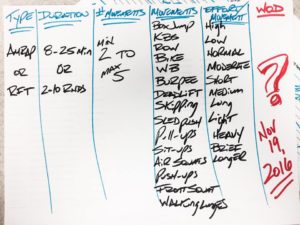 TYPE
AMRAP
OR
RFT
DURATION
8-25 min
OR
2-10 RNDS
# MOVEMENTS
MIN
2 TO
MAX
5
MOVEMENTS
Box Jump
KBS
Row
Bike
WB
BURPEE
DEADLIFT
SKIPPING
SLED PUSH
Pull-ups
Sit-ups
Air Squats
Push-ups
Front Squat
Walking Lunges
EFFORT/
MOVEMENT
High
Low
NORMAL
MODERATE
Short
Medium
Long
Light
HEAVY
BRIEF
Longer
WOD
?
Nov
19,
2016